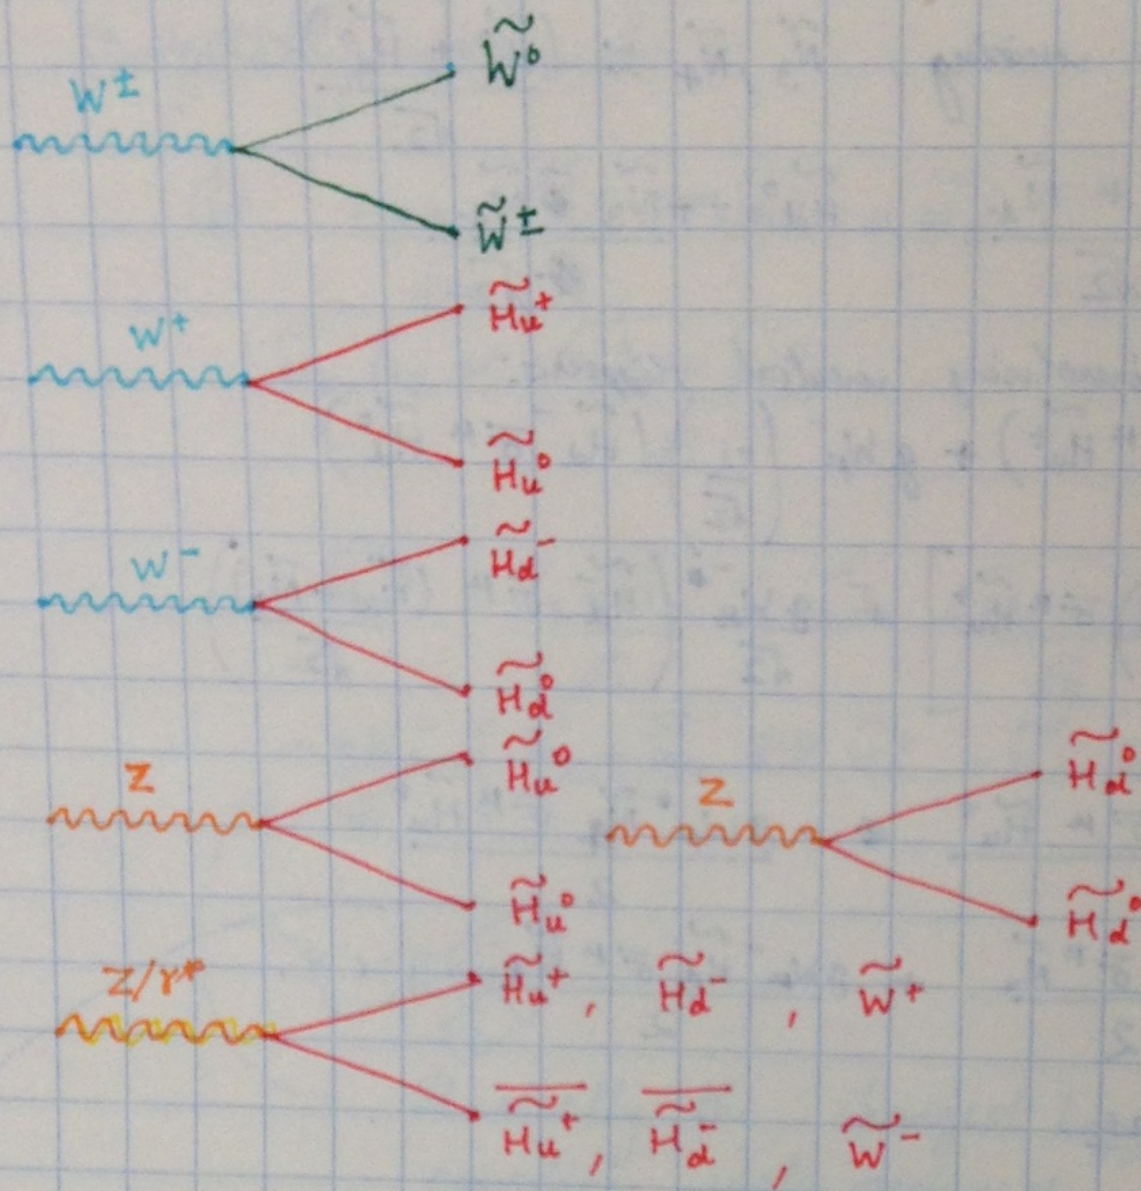 W± W̃⁰
W̃±
W⁺ H̃ᵤ⁺
H̃ᵤ⁰
W⁻ H̃_d⁻
H̃_d⁰
Z H̃ᵤ⁰ Z H̃_d⁰
H̃ᵤ⁰ H̃_d⁰
Z/γ* H̃ᵤ⁺, H̃_d⁻, W̃⁺
\overline{H̃ᵤ⁺}, \overline{H̃_d⁻}, W̃⁻